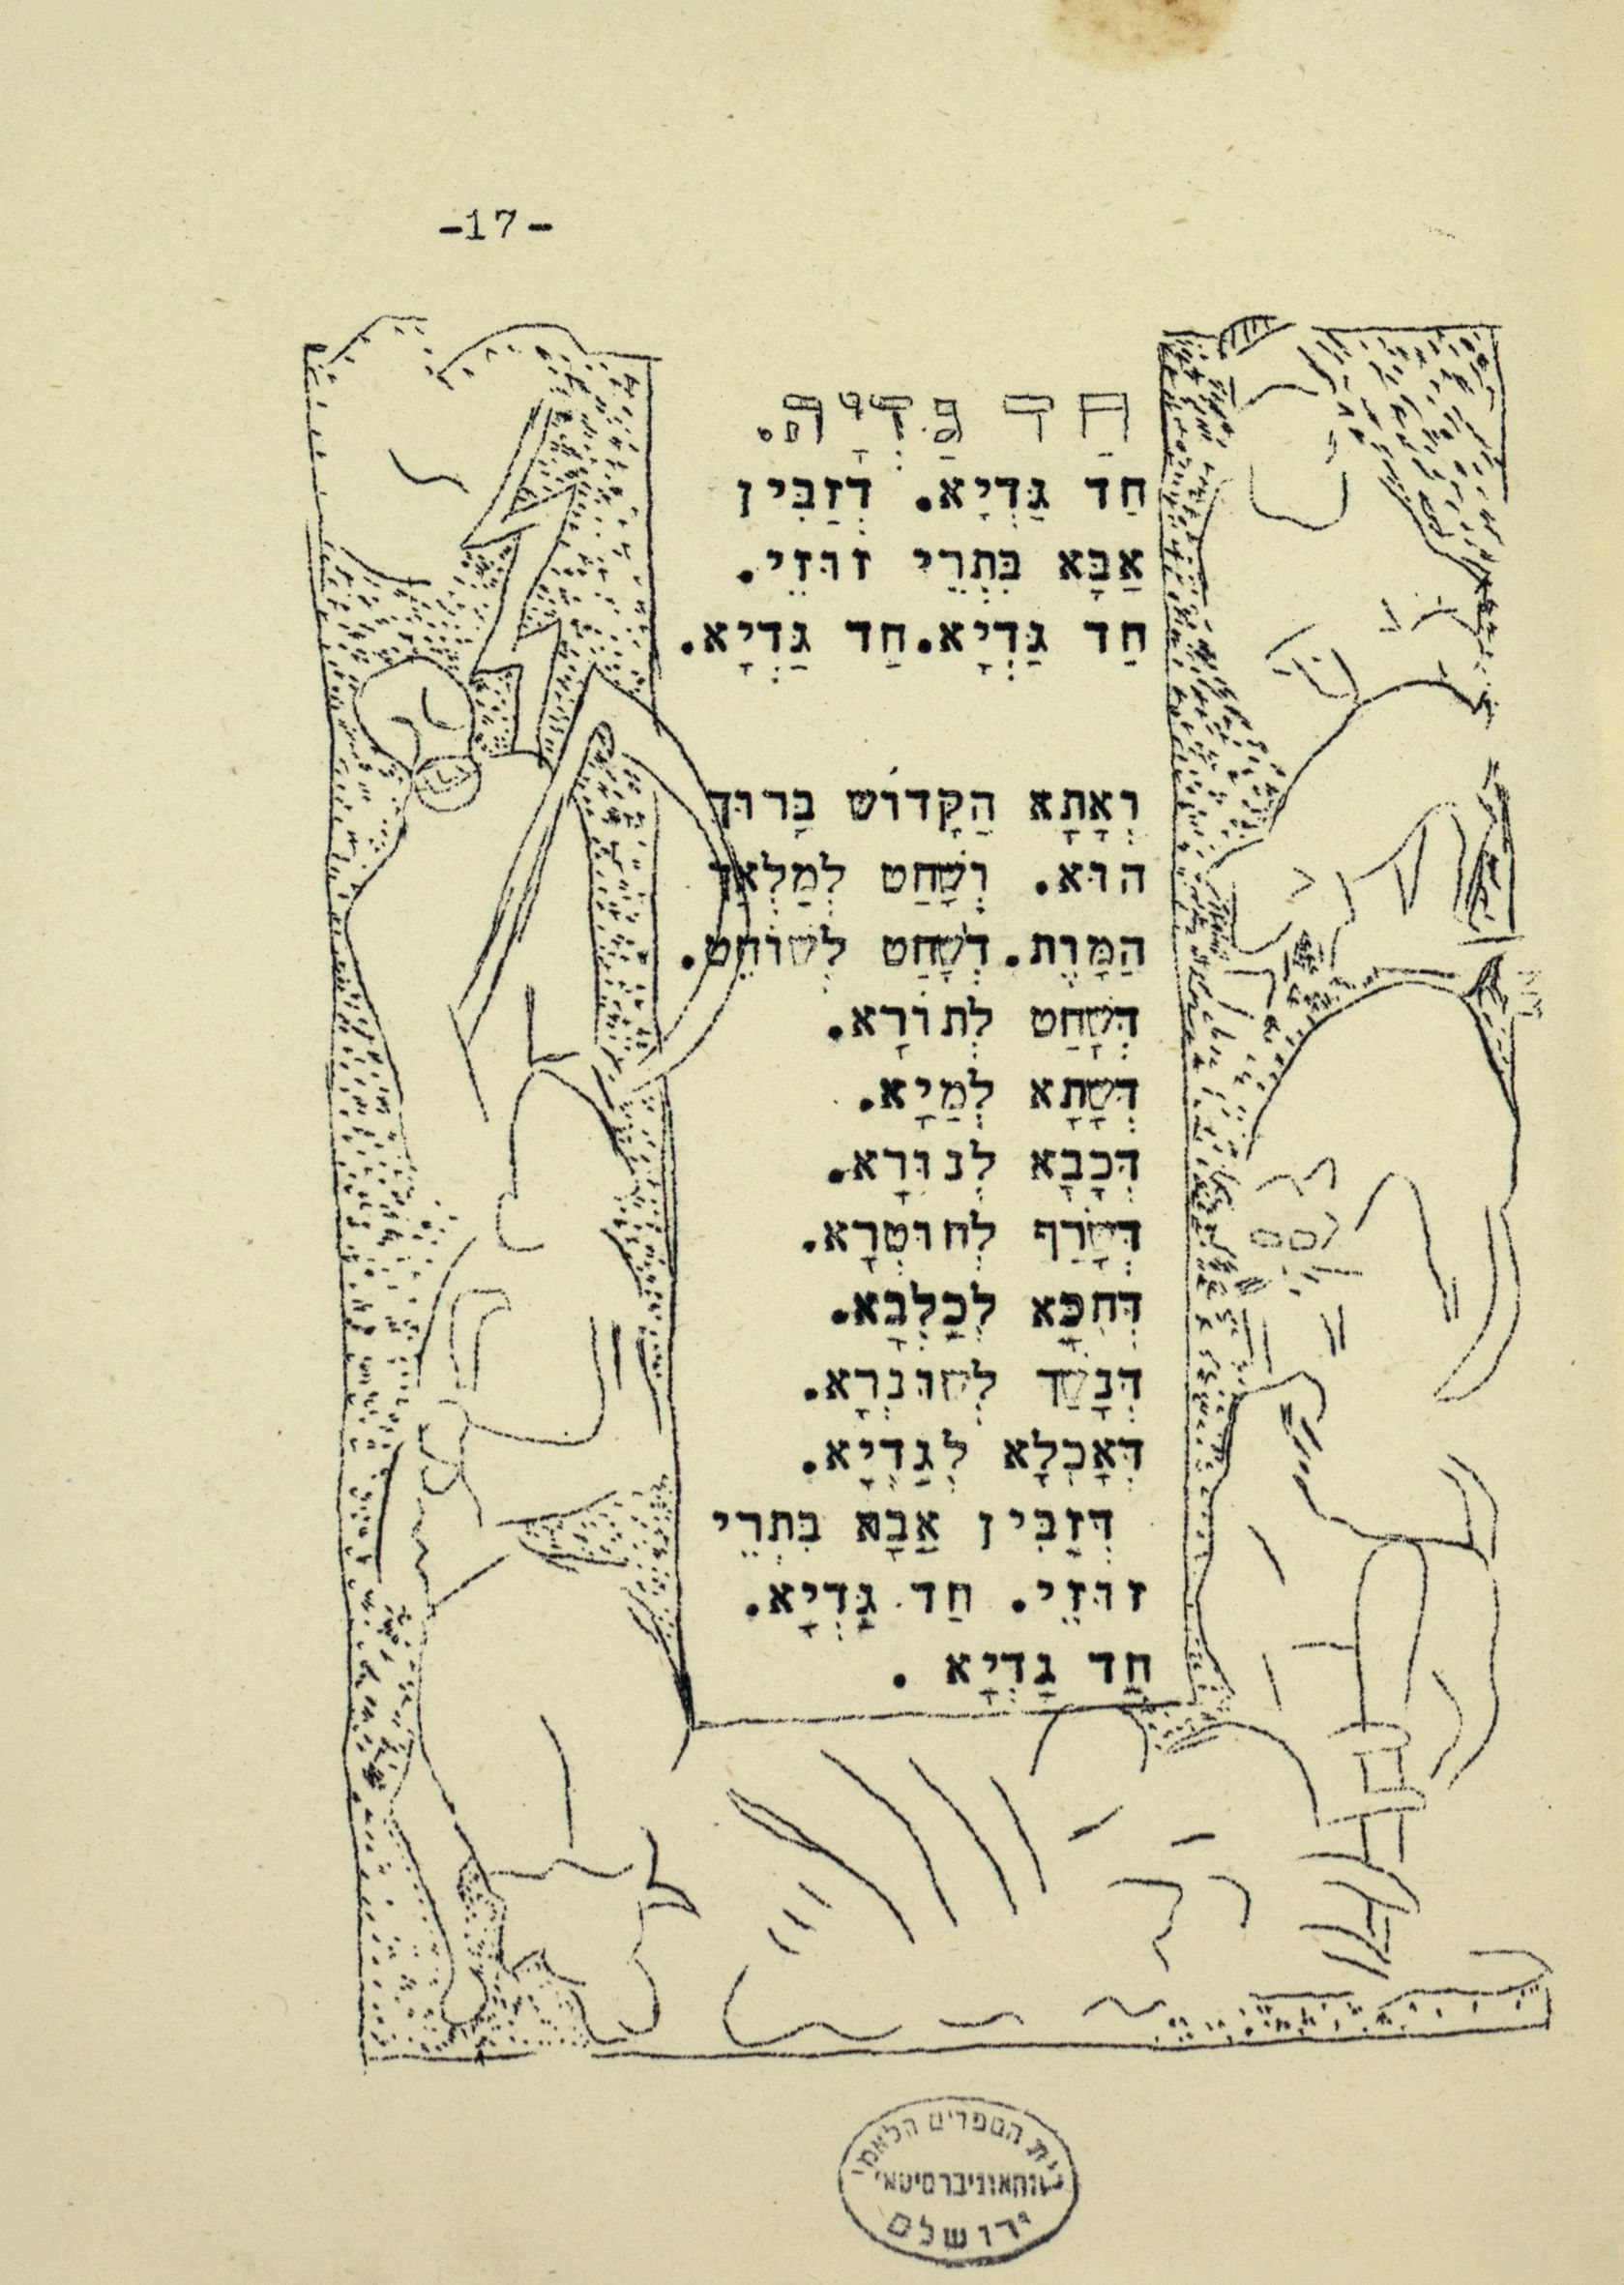 -17-
חַד גַּדְיָה.
חַד גַּדְיָא. דְזַבִּין
אַבָּא בִּתְרֵי זוּזֵי.
חַד גַּדְיָא.חַד גַּדְיָא.
וְאָתָא הַקָּדוֹשׁ בָּרוּךְ
הוּא. וְשָׁחַט לְמַלְאַךְ
הַמָּוֶת.דְשָׁחַט לְשׁוֹחֵט.
דְּשָׁחַט לְתוֹרָא.
דְּשָׁתָא לְמַיָא.
דְּכָבָא לְנוּרָא.
דְּשָׂרַף לְחוּטְרָא.
דְּחִכָּא לְכַלְבָּא.
דְּנָשַׁךְ לְשׁוּנְרָא.
דְּאָכְלָא לְגַדְיָא.
דְּזַבִּין אַבָּא בִּתְרֵי
זוּזֵי. חַד גַּדְיָא.
חַד גַּדְיָא .
בית הספרים הלאומי
והאוניברסיטאי
ירושלם